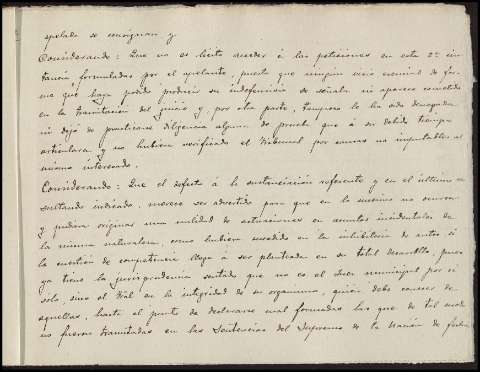 apelada se consignan y
Considerando: Que no es lícito acceder á las peticiones en esta 2ª ins
tancia formuladas por el apelante, puesto que ningun vicio esencial de for-
ma que haya podido producir su indefensión se señala ni aparece cometido
en la tramitación del juicio y, por otra parte, tampoco le ha sido denegada
ni dejó de practicarse diligencia alguna de prueba que á su debido tiempo
articulara y no hubiera verificado el Tribunal por causas no imputables al
mismo interesado.
Considerando: Que el defecto á la sustanciación referente y en el último re
sultando indicado, merece ser advertido para que en lo sucesivo no ocurra
y pudiera originar una nulidad de actuaciones en asuntos incidentales de
la misma naturaleza, como hubiera sucedido en la inhibitoria de autos si
la cuestión de competencia llega á ser planteada en su total desarrollo, pues
ya tiene la jurisprudencia sentado que no es el Juez municipal por si
solo, sino el Tribal en la integridad de su organismo, quién debe conocer de
aquellas, hasta el punto de declararse mal formadas las que de tal modo
no fueron tramitadas en las Sentencias del Supremo de la Nación de fecha